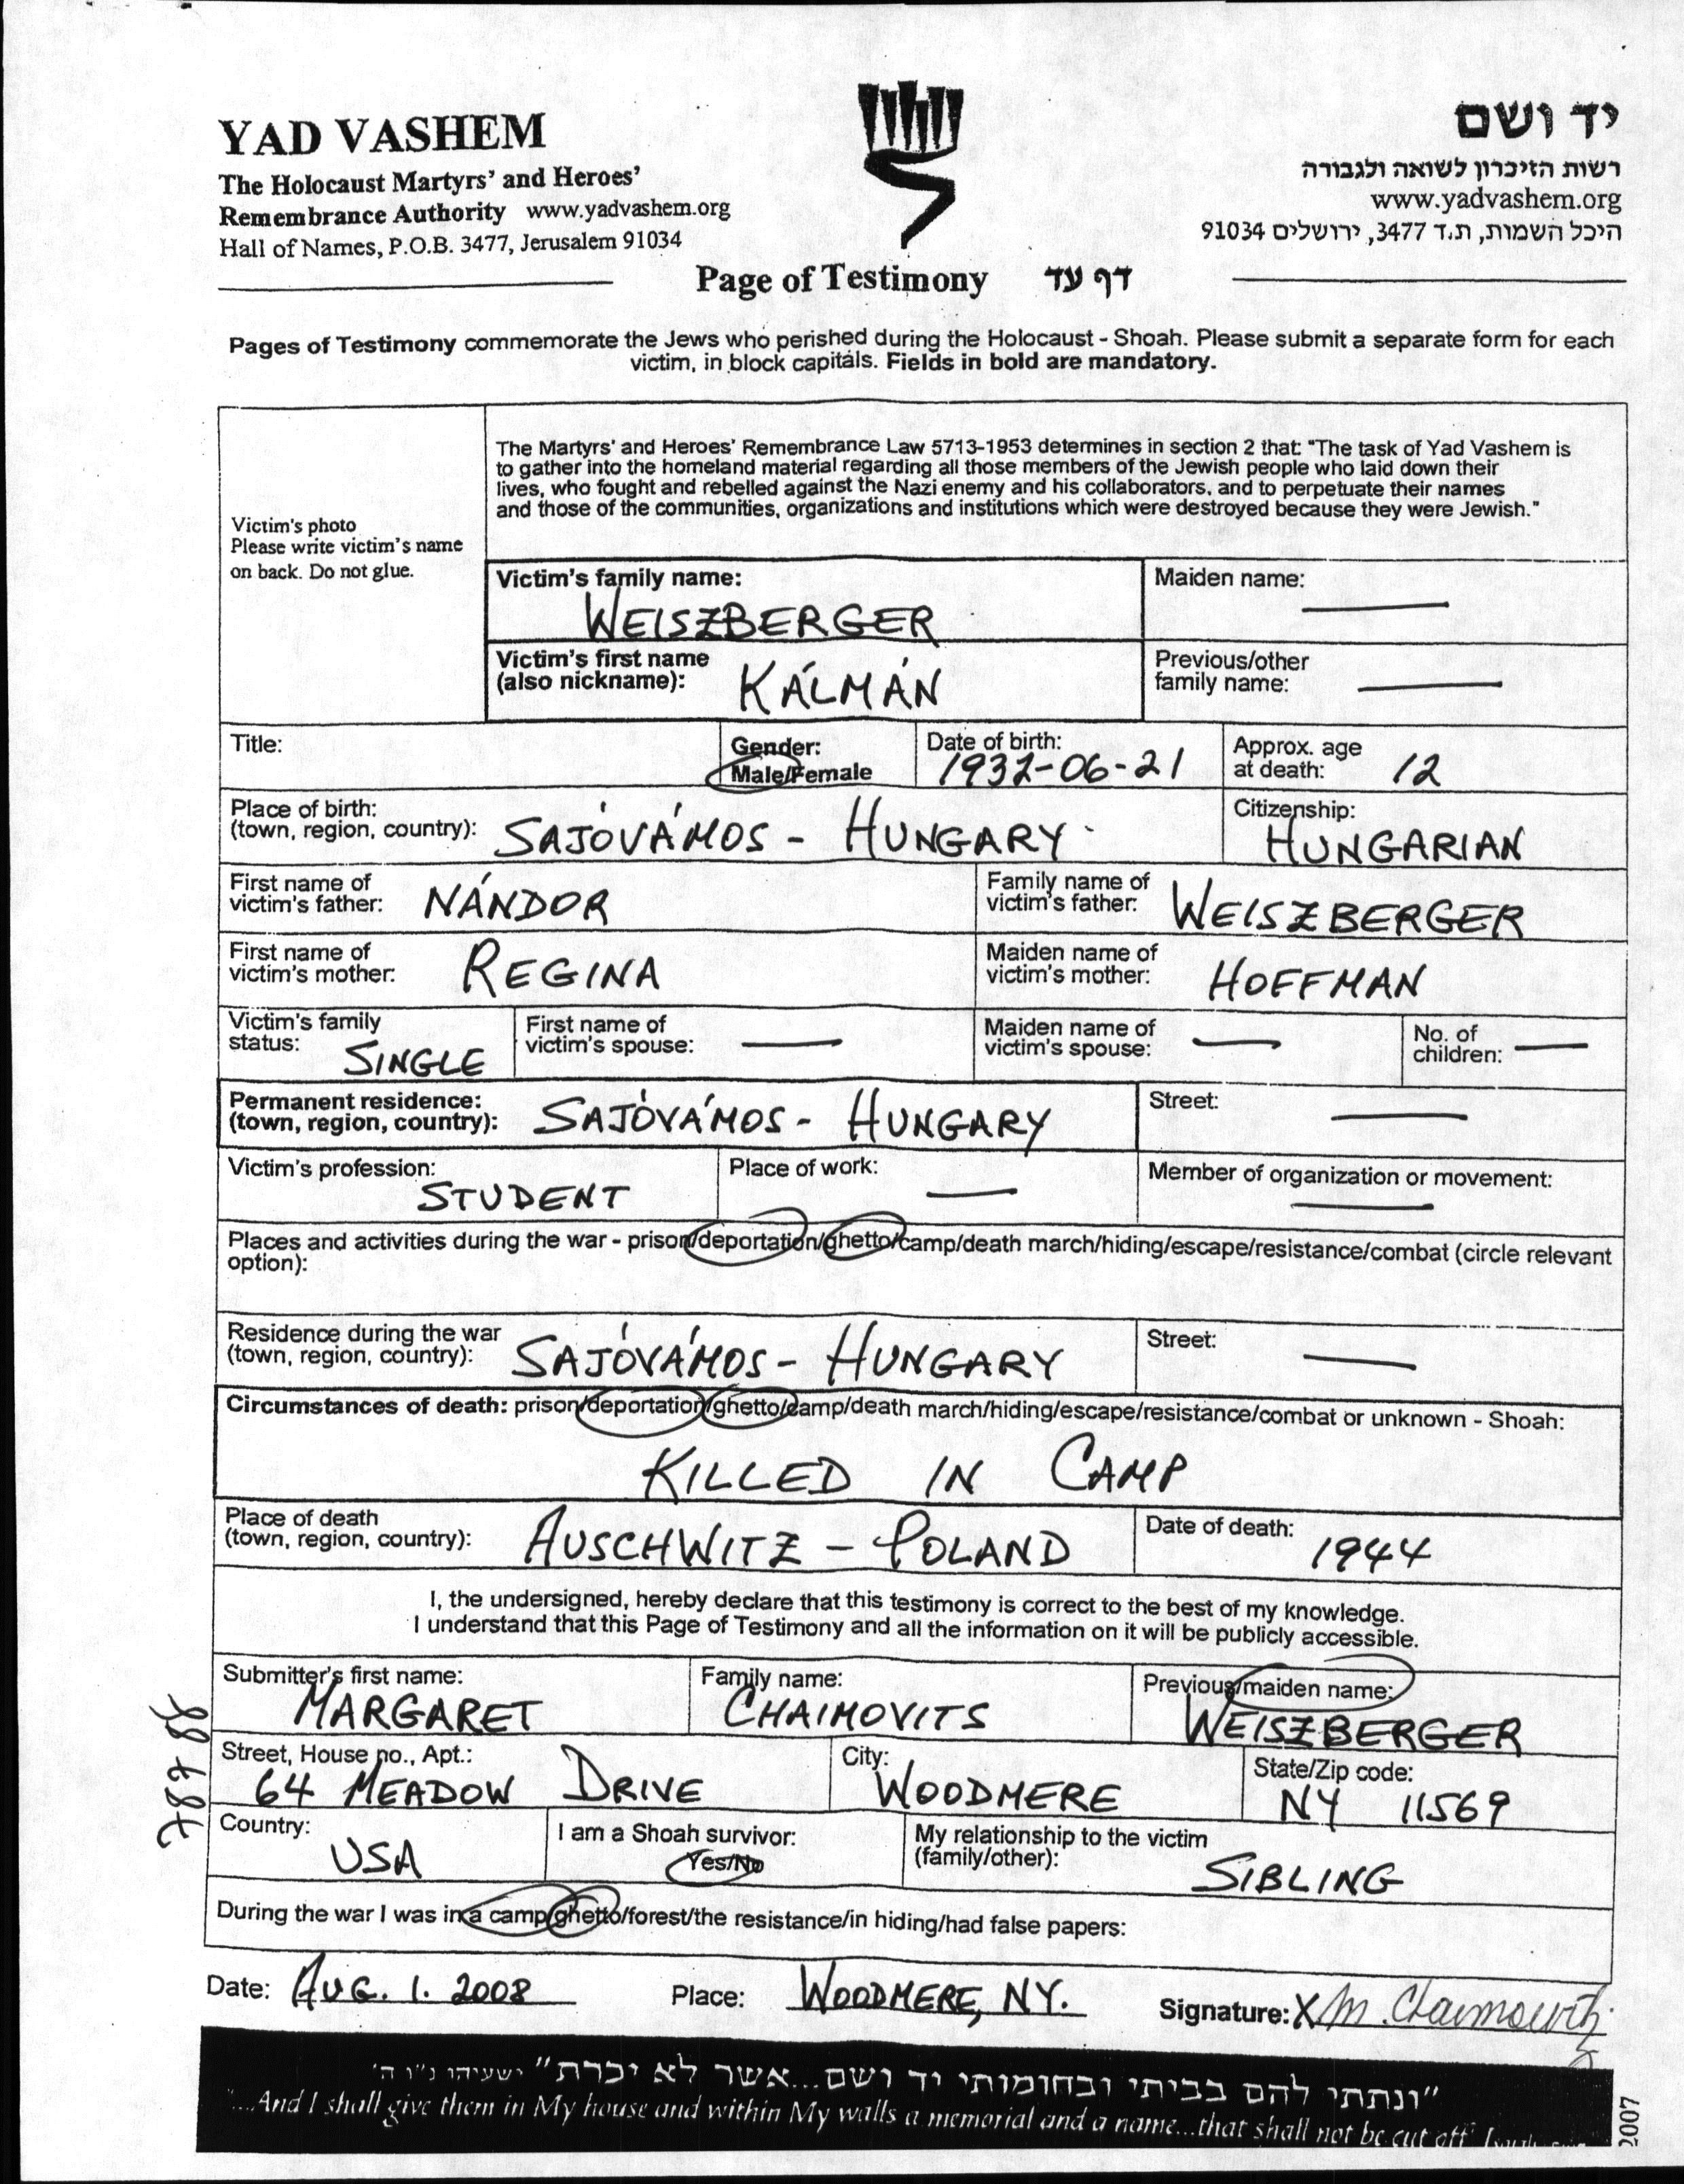 YAD VASHEM
The Holocaust Martyrs' and Heroes'
Remembrance Authority www.yadvashem.org
Hall of Names, P.O.B. 3477, Jerusalem 91034
יד ושם
רשות הזיכרון לשואה ולגבורה
www.yadvashem.org
היכל השמות, ת.ד 3477, ירושלים 91034
Page of Testimony דף עד
Pages of Testimony commemorate the Jews who perished during the Holocaust - Shoah. Please submit a separate form for each
victim, in block capitals. Fields in bold are mandatory.
Victim's photo
Please write victim's name
on back. Do not glue.
The Martyrs' and Heroes' Remembrance Law 5713-1953 determines in section 2 that: "The task of Yad Vashem is
to gather into the homeland material regarding all those members of the Jewish people who laid down their
lives, who fought and rebelled against the Nazi enemy and his collaborators, and to perpetuate their names
and those of the communities, organizations and institutions which were destroyed because they were Jewish."
Victim's family name: WEISZBERGER
Maiden name: —
Victim's first name
(also nickname): KÁLMÁN
Previous/other
family name: —
Title:
Gender:
Male/Female
Date of birth:
1932-06-21
Approx. age
at death: 12
Place of birth:
(town, region, country): SAJÓVÁMOS - HUNGARY
Citizenship:
HUNGARIAN
First name of
victim's father: NÁNDOR
Family name of
victim's father: WEISZBERGER
First name of
victim's mother: REGINA
Maiden name of
victim's mother: HOFFMAN
Victim's family
status: SINGLE
First name of
victim's spouse: —
Maiden name of
victim's spouse: —
No. of
children: —
Permanent residence:
(town, region, country): SAJÓVÁMOS - HUNGARY
Street: —
Victim's profession:
STUDENT
Place of work: —
Member of organization or movement: —
Places and activities during the war - prison/deportation/ghetto/camp/death march/hiding/escape/resistance/combat (circle relevant
option):
Residence during the war
(town, region, country): SAJÓVÁMOS - HUNGARY
Street: —
Circumstances of death: prison/deportation/ghetto/camp/death march/hiding/escape/resistance/combat or unknown - Shoah:
KILLED IN CAMP
Place of death
(town, region, country): AUSCHWITZ - POLAND
Date of death: 1944
I, the undersigned, hereby declare that this testimony is correct to the best of my knowledge.
I understand that this Page of Testimony and all the information on it will be publicly accessible.
Submitter's first name:
MARGARET
Family name:
CHAIMOVITS
Previous/maiden name:
WEISZBERGER
Street, House no., Apt.:
64 MEADOW DRIVE
City:
WOODMERE
State/Zip code:
NY 11569
Country:
USA
I am a Shoah survivor:
Yes/No
My relationship to the victim
(family/other): SIBLING
During the war I was in a camp/ghetto/forest/the resistance/in hiding/had false papers:
Date: AUG. 1. 2008
Place: WOODMERE, NY.
Signature: X M. Chaimovitz
"ונתתי להם בביתי ובחומותי יד ושם...אשר לא יכרת" ישעיהו נ"ו ה'
"...And I shall give them in My house and within My walls a memorial and a name...that shall not be cut off"
2007